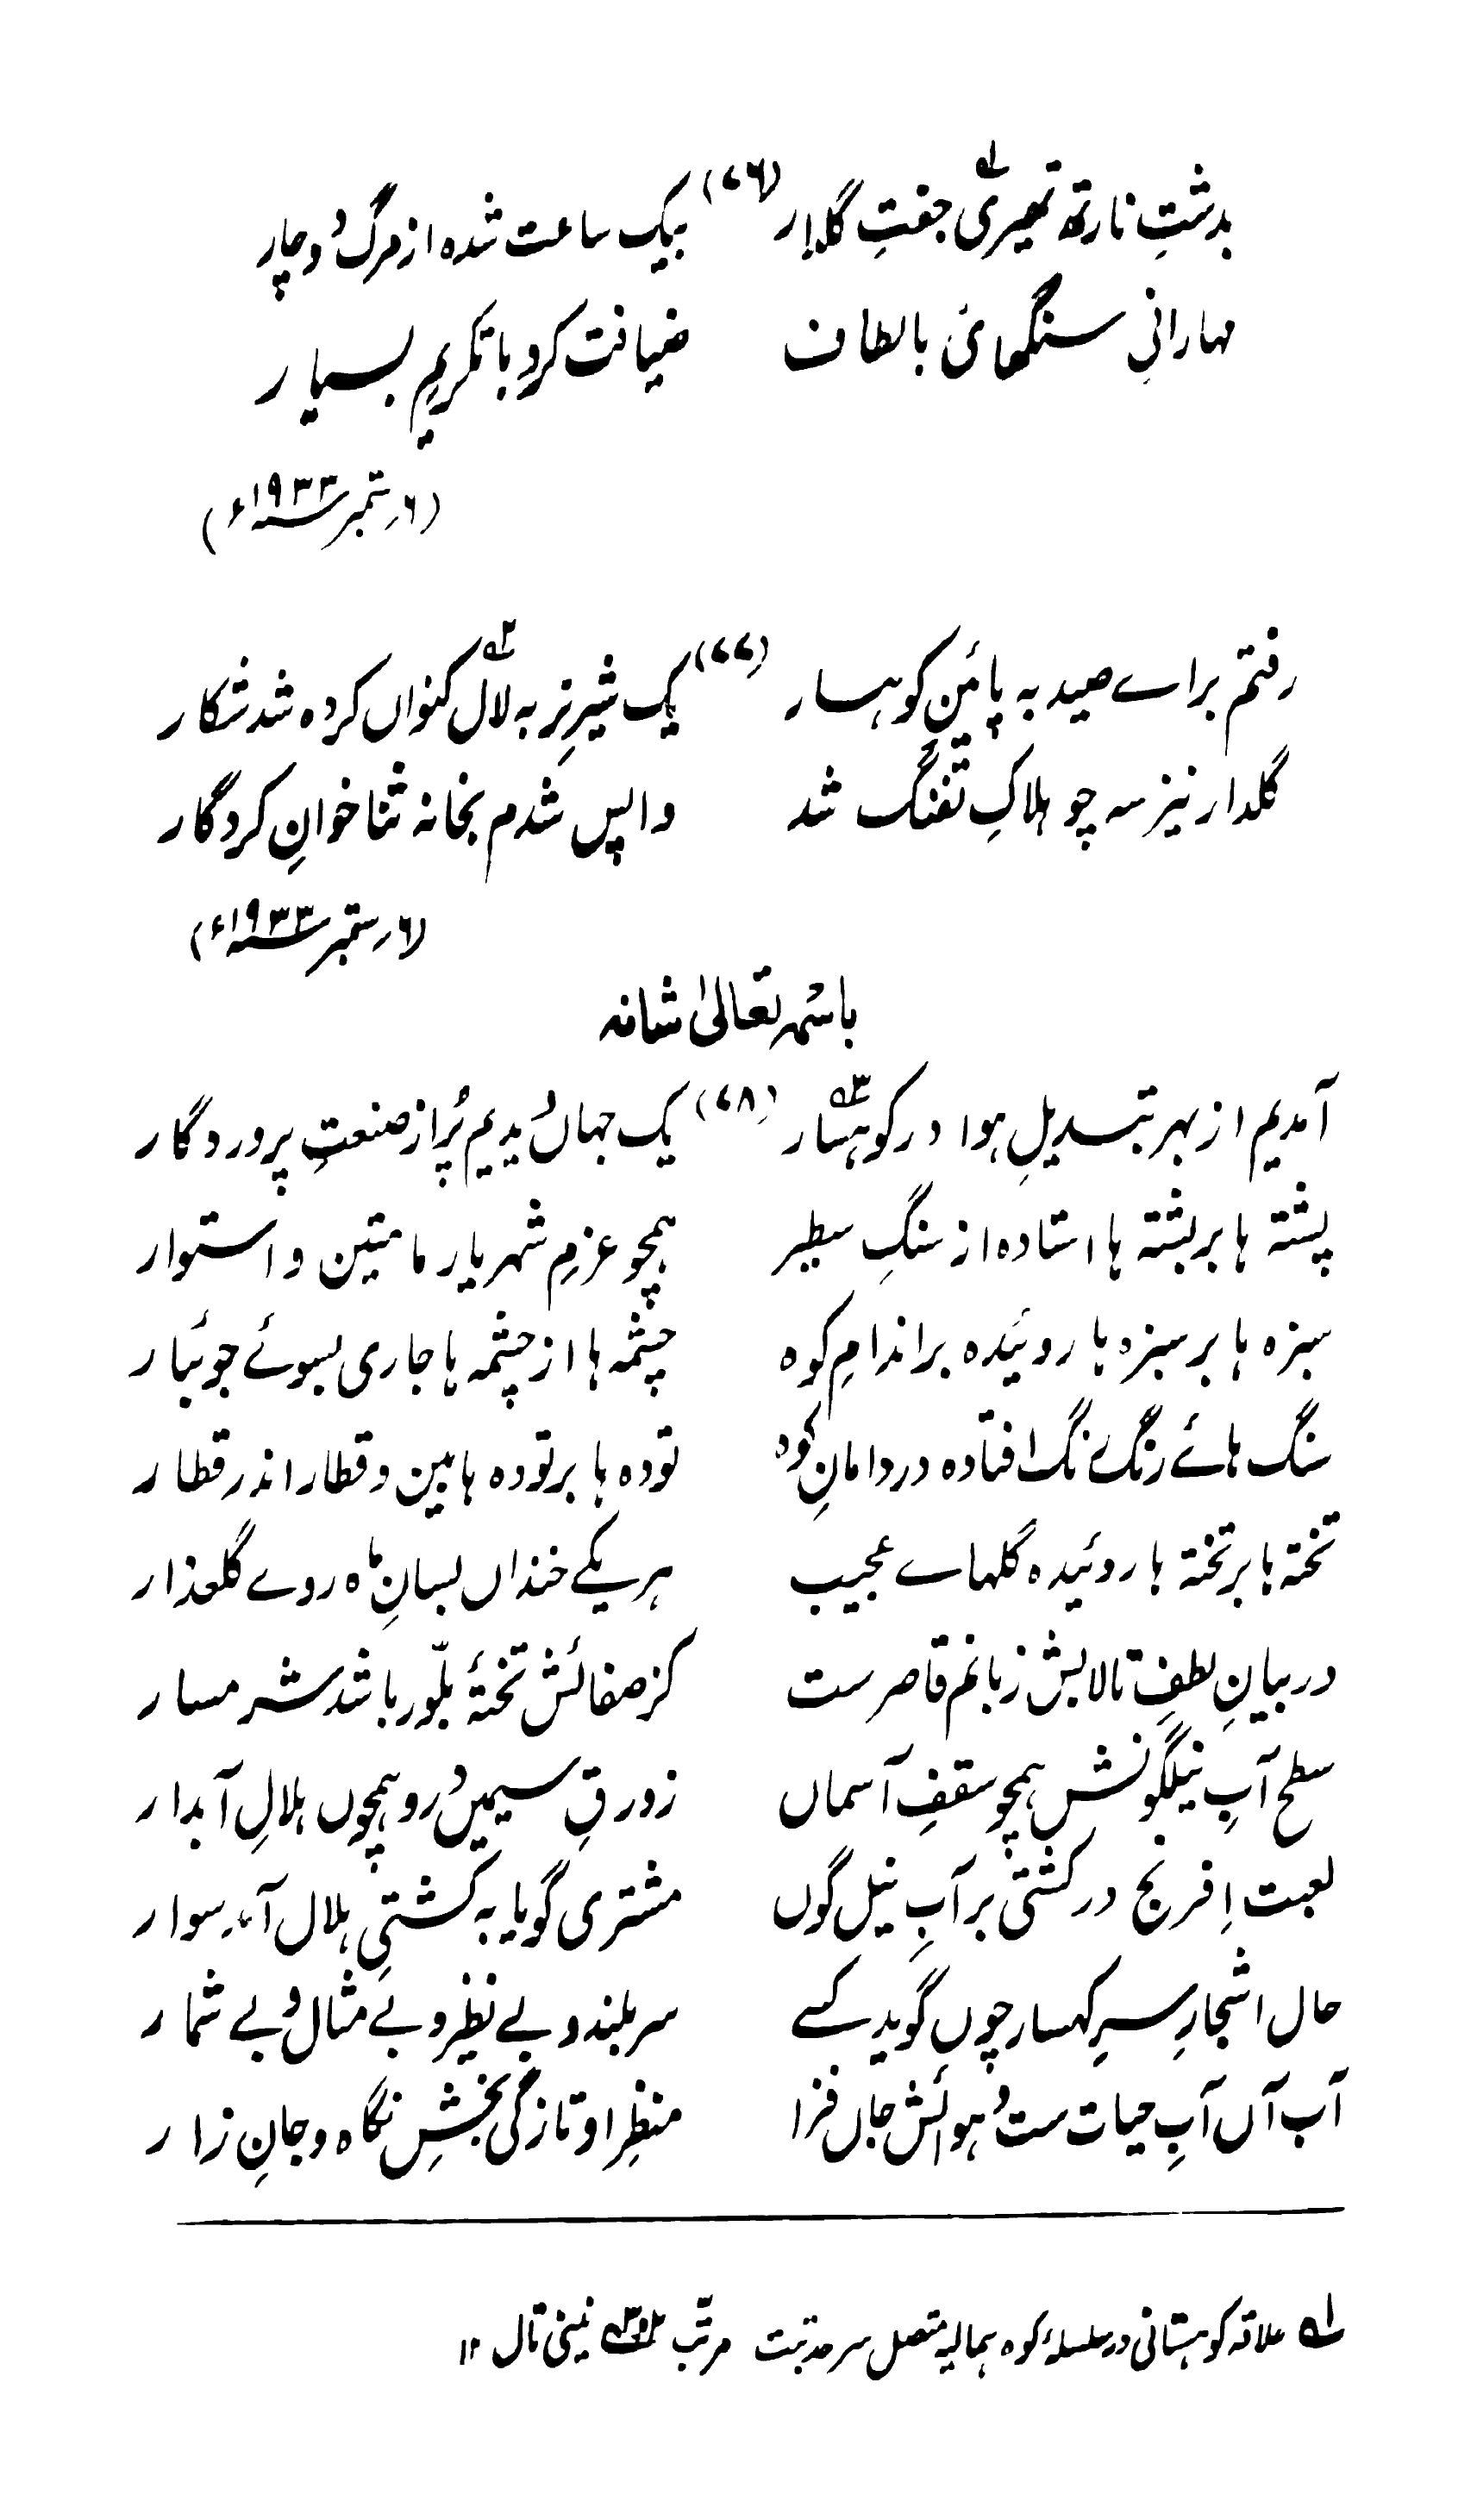 بدشتِ نارۂ تمیریؔ جفتِ گلدار (۷۶) بیک ساعت شده از مرگ دُوچار
مہارانیِ سنگہائی بالطاف ضیافت کرد با تکریمِ بسیار
(۶؍ ستمبر ۱۹۳۳ء)
رفتم براے صید بہ پائینِ کوہسار (۷۷) یک شیرِ نر بہ لال کنواں کردہ شد شکار
گلدار نیز سہ چو ہلاکِ تفنگ شد واپس شدم بخانہ ثنا خوانِ کردگار
(۶؍ ستمبر ۱۹۳۳ء)
باسمہٖ تعالیٰ شانہ
آمدیم از بہر تبدیلِ ہوا در کوہسار (۷۸) یک جہاں دیدیم پُر از صنعتِ پروردگار
پشتہ ہا بر پشتہ ہا استادہ از سنگِ سطبر ہمچو عزمِ شہریارِ ما متین و استوار
سبزہ ہا بر سبزہ ہا روئیدہ بر اندامِ کوہ چشمہ ہا از چشمہ ہا جاری بسوئے جوئبار
سنگ ہائے رنگ رنگ افتادہ در دامانِ کوہ تودہ ہا بر تودہ ہا بین و قطار اندر قطار
تختہ ہا بر تختہ ہا روئیدہ گلہاے عجیب ہر یکے خنداں بسانِ ماہ روے گلعذار
در بیانِ لطفِ تالابش زبانم قاصرست کز صفائش تختۂ بلّور باشد شرمسار
سطح آبِ نیلگونش ہمچو سقفِ آسماں زورقِ سیمین رُو ہمچوں ہلالِ آبدار
لعبت اِفرنج در کشتی بر آبِ نیل گوں مشتری گویا بہ کشتیِ ہلال آمد سوار
حال اشجارِ سرِ کہسار چوں گوید کسے سر بلند و بے نظیر و بے مثال و بے شمار
آب آں آبِ حیات ست و ہوائش جاں فزا منظرِ او تازگی بخشِ نگاہ و جانِ زار
لہ علاقہ کوہستانی در سلسلۂ کوہ ہمالیہ متصل سرحد تبت مرتّب نینی تال ۱۲